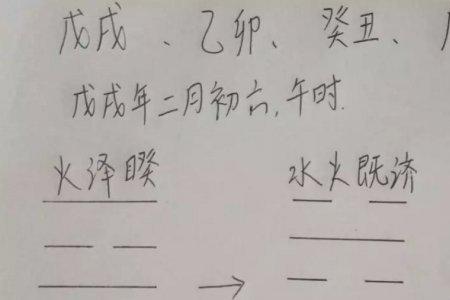 戊戌、乙卯、癸丑、
戊戌年二月初六,午时.
火泽睽
水火既济